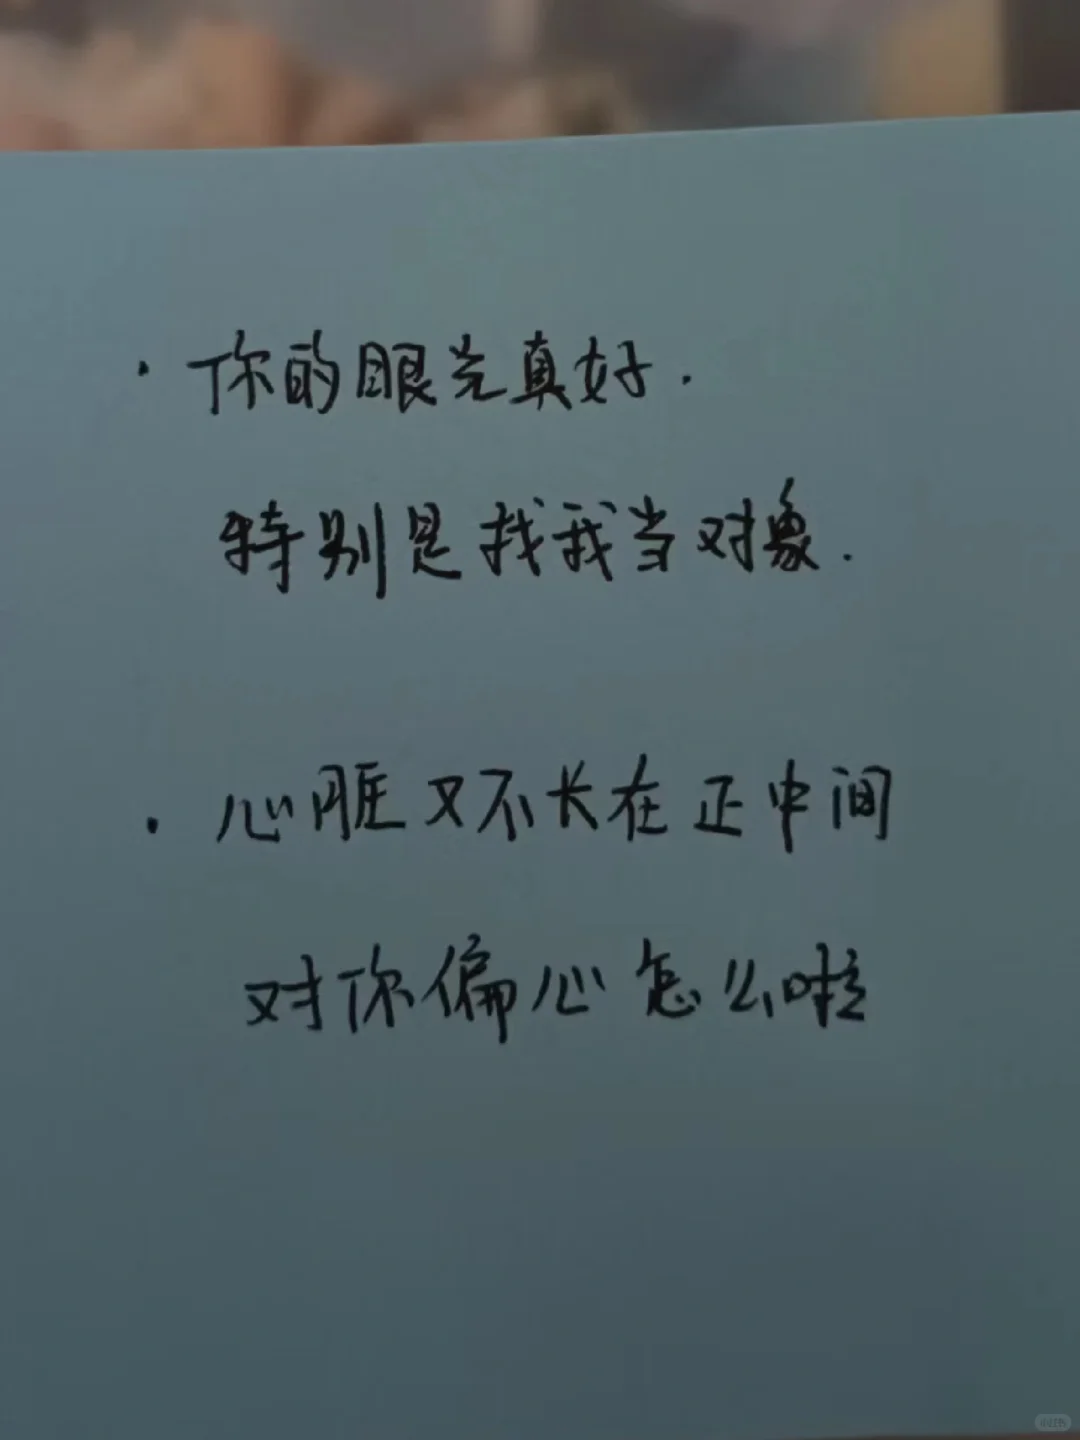 · 你的眼光真好.
特别是找我当对象.
· 心脏又不长在正中间
对你偏心怎么啦
小红书